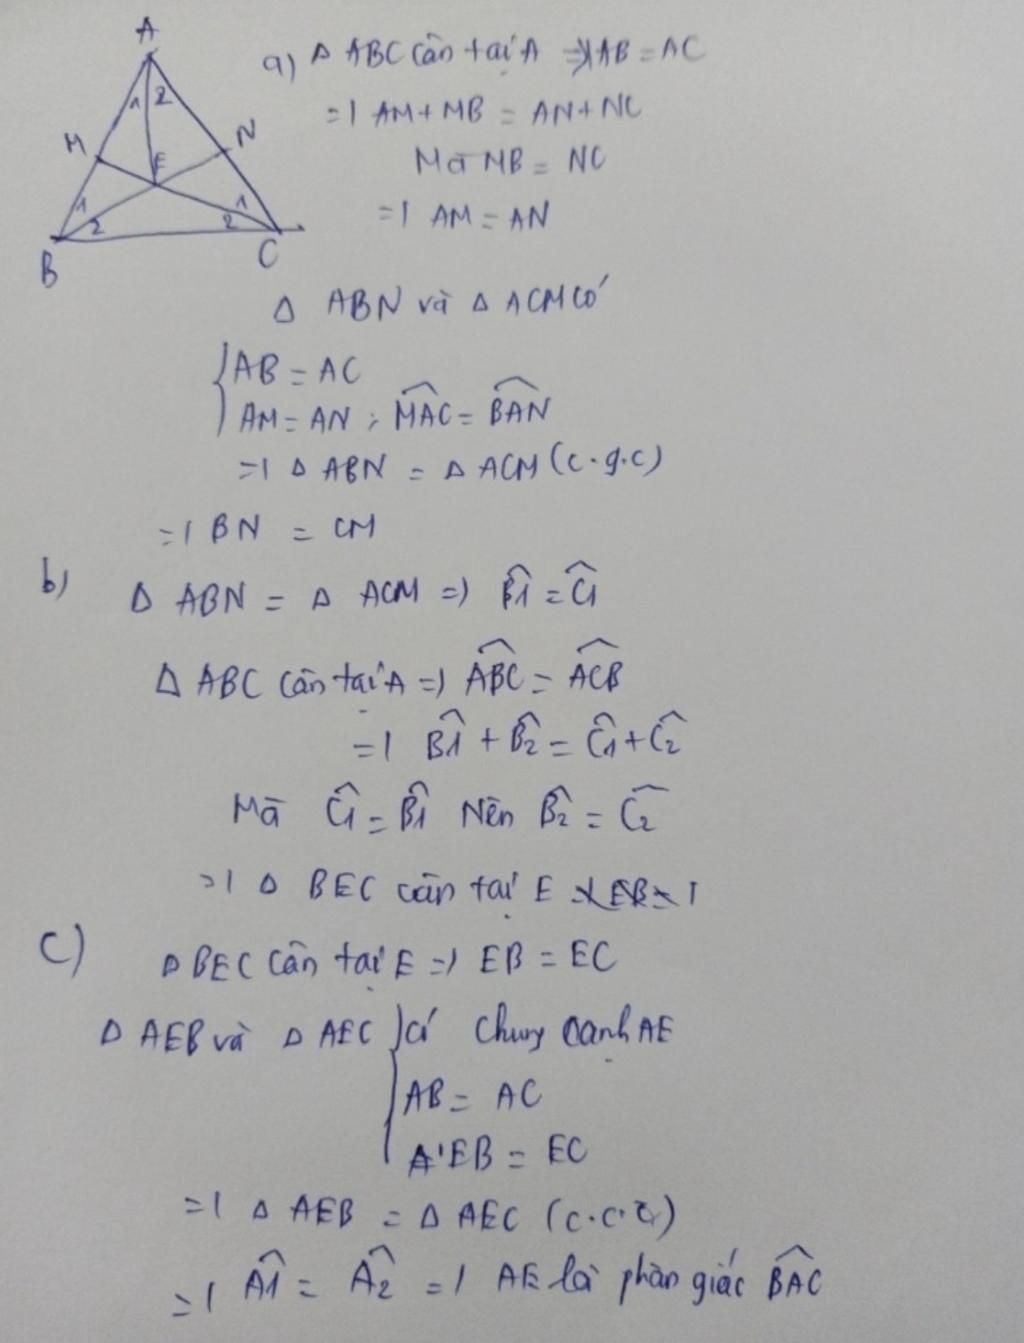 A
1 2
M N
E
1 1
2 2
B C
a) Δ ABC cân tại A => AB = AC
=> AM + MB = AN + NC
Mà MB = NC
=> AM = AN
Δ ABN và Δ ACM có
AB = AC
AM = AN ; \widehat{MAC} = \widehat{BAN}
=> Δ ABN = Δ ACM (c.g.c)
=> BN = CM
b) Δ ABN = Δ ACM => \widehat{B1} = \widehat{C1}
Δ ABC cân tại A => \widehat{ABC} = \widehat{ACB}
=> \widehat{B1} + \widehat{B2} = \widehat{C1} + \widehat{C2}
Mà \widehat{C1} = \widehat{B1} Nên \widehat{B2} = \widehat{C2}
=> Δ BEC cân tại E
c) Δ BEC cân tại E => EB = EC
Δ AEB và Δ AEC có chung cạnh AE
AB = AC
EB = EC
=> Δ AEB = Δ AEC (c.c.c)
=> \widehat{A1} = \widehat{A2} => AE là phân giác \widehat{BAC}